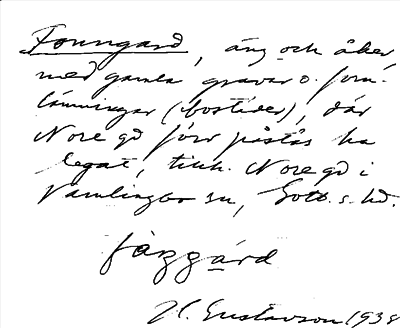 Fornngard, äng och åker
med gamla gravar o. forn-
lämningar (bostäder), där
Nore gd förr påstås ha
legat, tillh. Nore gd i
Vamlingbo sn, Gotl. s. hd.
fåzgård
H. Gustavson 1938